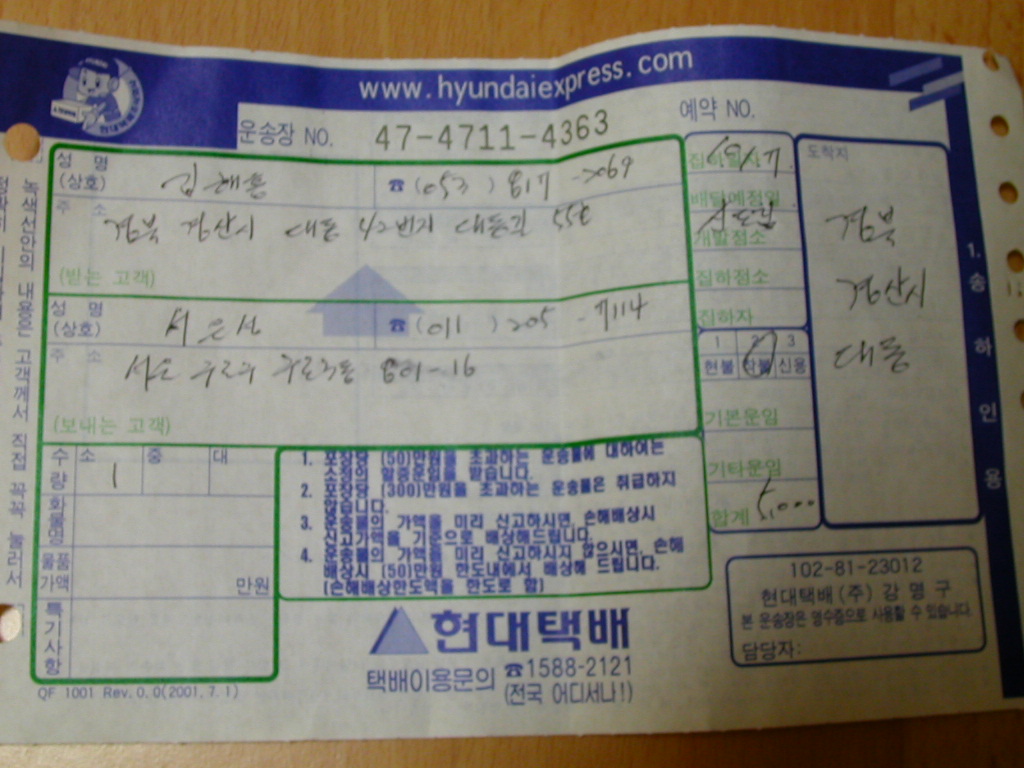 www.hyundaiexpress.com
운송장 NO. 47-4711-4363 예약 NO.
성 명 (상호) 김해룡 ☎ (053) 817-2069
주 소 경북 경산시 대동 42번지
(받는 고객)
성 명 (상호) 서은선 ☎ (011) 205-7114
주 소 서울 구로구 구로3동 801-16
(보내는 고객)
집하일자
배달예정일
개발점소
집하점소
집하자
1 2 3
현불 착불 신용
기본운임
기타운임
합계 5,000
도착지
경북
경산시
대동
1. 송 하 인 용
녹색선안의 내용은 고객께서 직접 꼭꼭 눌러서
수량 소 중 대
1
화물명
물품가액 만원
특기사항
1. 포장당 (50)만원을 초과하는 운송물에 대하여는
소정의 할증운임을 받습니다.
2. 포장당 (300)만원을 초과하는 운송물은 취급하지
않습니다.
3. 운송물의 가액을 미리 신고하시면, 손해배상시
신고가액을 기준으로 배상해드립니다.
4. 운송물의 가액을 미리 신고하시지 않으시면, 손해
배상시 (50)만원 한도내에서 배상해 드립니다.
(손해배상한도액을 한도로 함)
102-81-23012
현대택배(주) 강명구
본 운송장은 영수증으로 사용할 수 있습니다.
담당자:
현대택배
택배이용문의 ☎1588-2121
(전국 어디서나!)
QF 1001 Rev.0.0(2001.7.1)